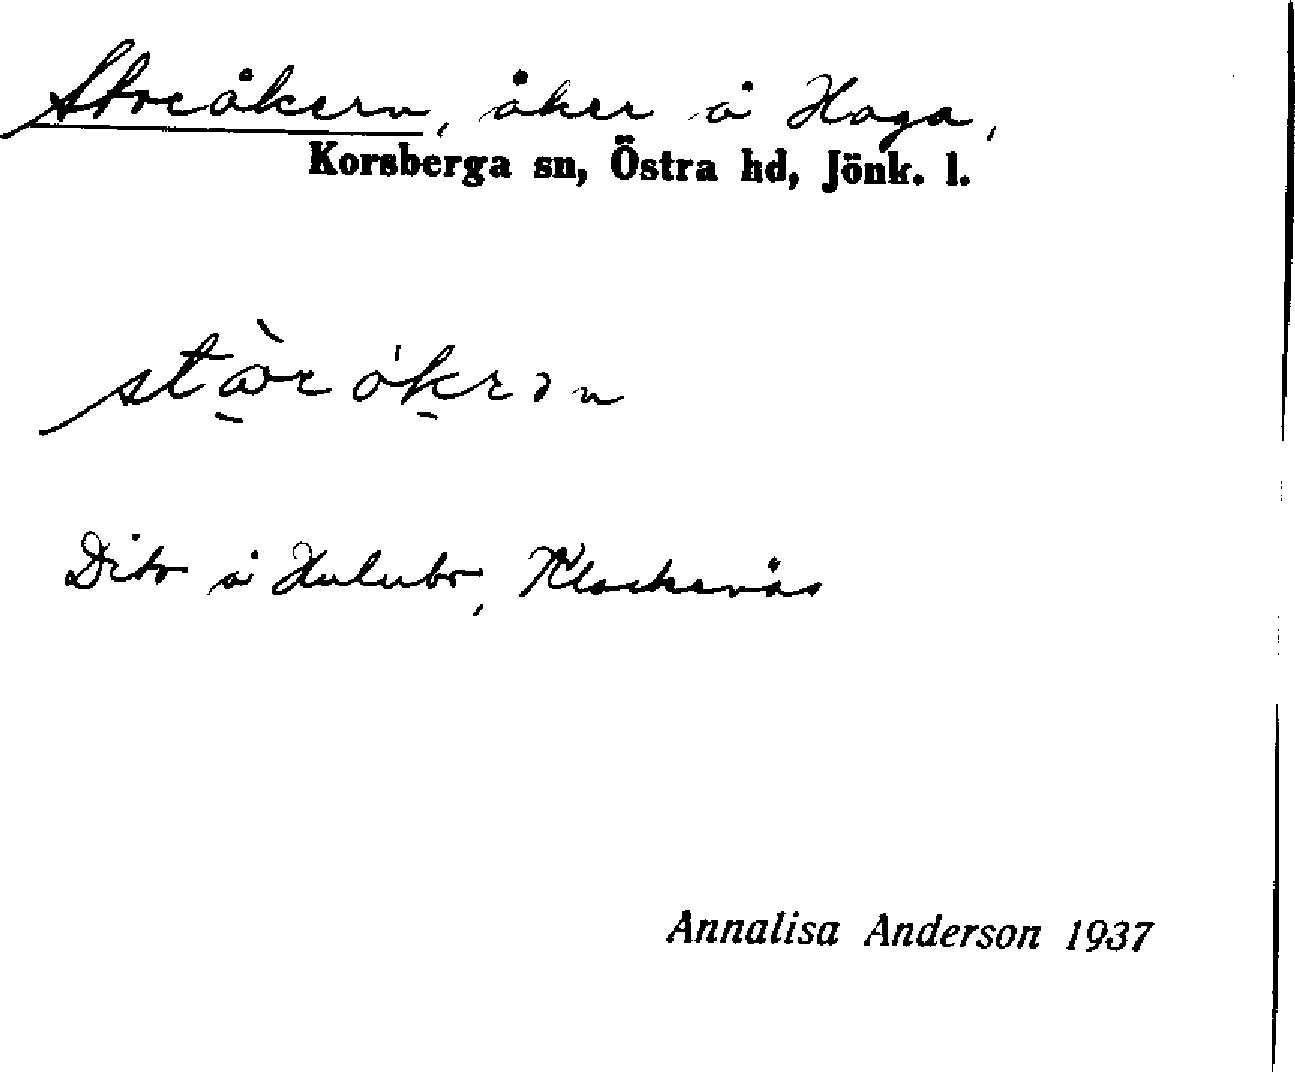 Storåkern, åker å Haga,
Korsberga sn, Östra hd, Jönk. l.
Dito å Hulubo, Klockenäs
Annalisa Anderson 1937